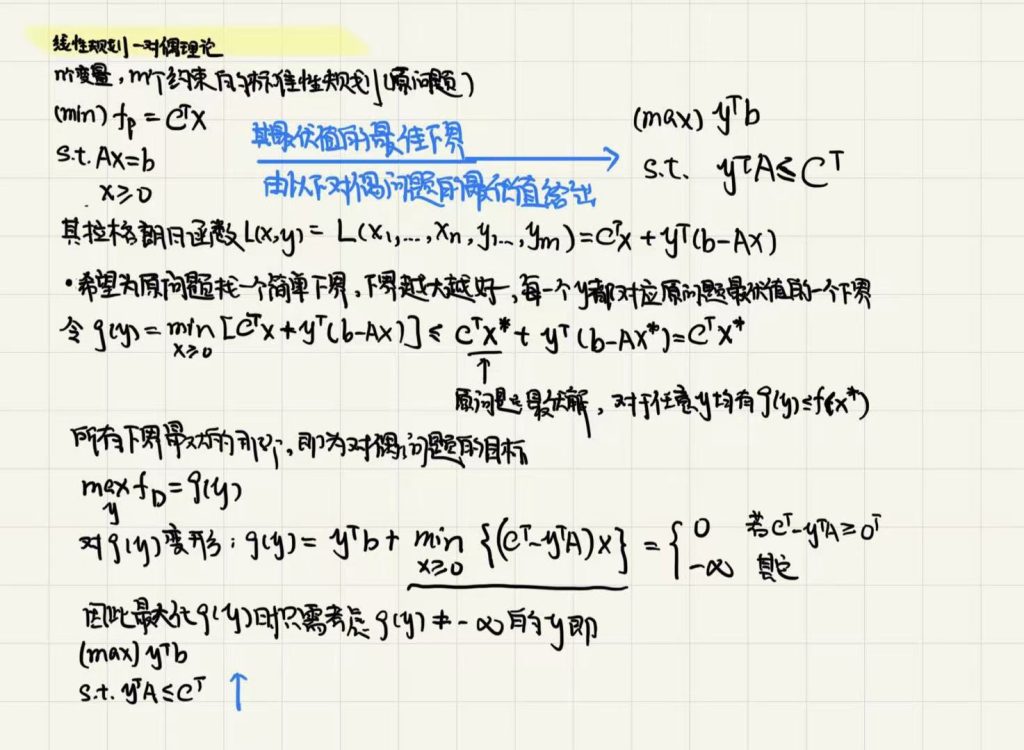 线性规划—对偶理论
n个变量，m个约束的标准性规划（原问题）
(min) fₚ = CᵀX
s.t. Ax=b
x≥0
其最优值的最佳下界
由以下对偶问题的最优值给出
(max) yᵀb
s.t. yᵀA≤Cᵀ
其拉格朗日函数L(x,y) = L(x₁,...,xₙ,y₁...,yₘ)=Cᵀx+yᵀ(b-Ax)
·希望为原问题找一个简单下界，下界越大越好，每一个y都对应原问题最优值的一个下界
令g(y)=min x≥0 [Cᵀx+yᵀ(b-Ax)] ≤ CᵀX*+yᵀ(b-AX*)=CᵀX*
↑
原问题最优解，对于任意y均有g(y)≤f(x*)
所有下界最大的那个，即为对偶问题的目标
max y f_D=g(y)
对g(y)变形：g(y)= yᵀb+ min x≥0 {(Cᵀ-yᵀA)x} = { 0 若Cᵀ-yᵀA≥0ᵀ
-∞ 其它
因此最大化g(y)时只需考虑g(y)≠-∞的y即
(max) yᵀb
s.t. yᵀA≤Cᵀ ↑